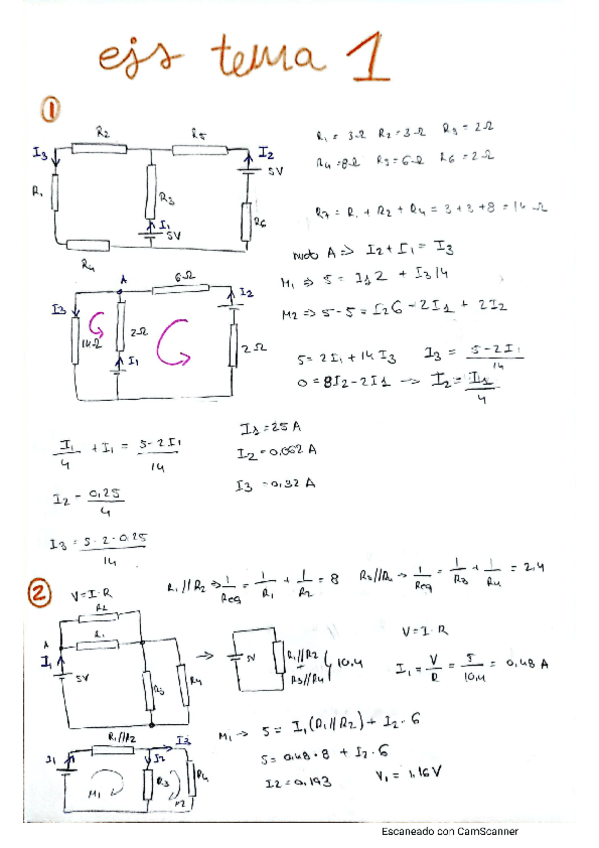 ejs tema 1
①
R2
R5
I3
I2
5V
R1
R3
I1
5V
R6
R4
R1 = 3Ω R2 = 3Ω R3 = 2Ω
R4 = 8Ω R5 = 6Ω R6 = 2Ω
R7 = R1 + R2 + R4 = 3 + 3 + 8 = 14Ω
nudo A => I2 + I1 = I3
M1 => 5 = I1 2 + I3 14
M2 => 5-5 = I2 6 - 2I1 + 2I2
A
6Ω
I3
I2
14Ω
2Ω
I1
2Ω
5 = 2I1 + 14I3 I3 = 5-2I1/14
0 = 8I2 - 2I1 → I2 = I1/4
I1/4 + I1 = 5-2I1/14
I1 = 25 A
I2 = 0,062 A
I3 = 0,32 A
I2 = 0,25/4
I3 = 5-2·0,25/14
② V=I·R
R1//R2 => 1/Req = 1/R1 + 1/R2 = 8
R3//R4 → 1/Req = 1/R3 + 1/R4 = 2,4
R2
A
R1
I1
5V
R3
R4
→
5V
R1//R2
R3//R4
10,4
V=I·R
I1 = V/R = 5/10,4 = 0,48 A
R1//R2
I3
I1
I2
R3
R4
M1
M2
M1 → 5 = I1(R1//R2) + I2·6
5 = 0,48·8 + I2·6
I2 = 0,193
V1 = 1,16V
Escaneado con CamScanner